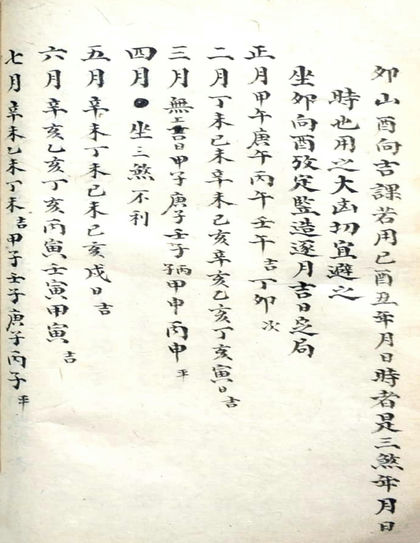 卯山酉向吉課若用巳酉丑年月日時者是三煞年月日
時也用之大凶切宜避之
坐卯向酉攷定監造逐月吉日之局
正月甲午庚午丙午壬午吉丁卯次
二月丁未己未辛未乙亥辛亥乙亥丁亥寅日吉
三月無上吉日甲子庚子壬子丙子甲申丙申平
四月●坐三煞不利
五月辛未丁未己未乙亥戌日吉
六月辛亥乙亥丁亥丙寅壬寅甲寅吉
七月辛未乙未丁未吉甲子壬子庚子丙子平